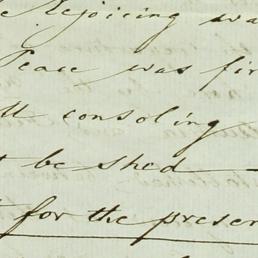 Rejoicing wa
Peace was fir
consoling
be shed —
for the presen